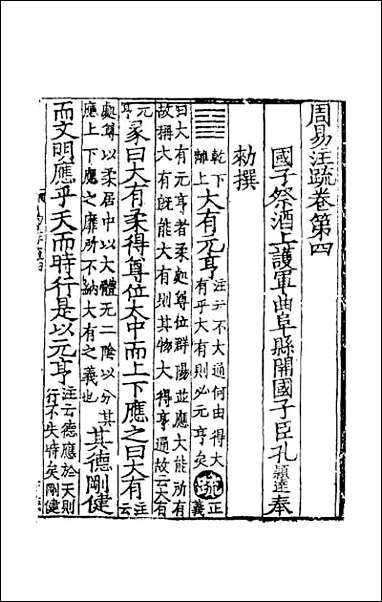 周易注疏卷第四
國子祭酒上護軍曲阜縣開國子臣孔穎達奉
勑撰
䷍乾下離上大有元亨注云不大通何由得大有乎大有則必元亨矣疏正義
曰大有元亨者柔處尊位群陽並應大能所有
故稱大有既能大有則其物大得亨通故云大有
元亨彖曰大有柔得尊位太中而上下應之曰大有注云
處尊以柔居中以大體无二陰以分其應上下應之靡所不納大有之義也其德剛健
而文明應乎天而時行是以元亨注云德應於天則行不失時矣剛健